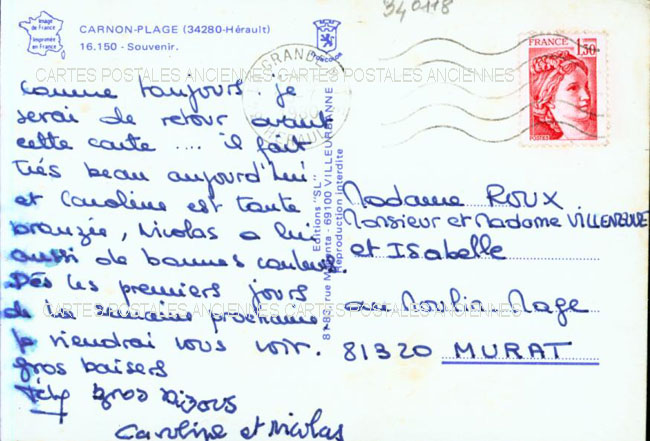 Image
de France
Imprimée
en France
CARNON-PLAGE (34280-Hérault)
16.150 - Souvenir.
340118
GRANDE
HERAULT
FRANCE
1,30
CARTES POSTALES ANCIENNES CARTES POSTALES ANCIENNES
comme toujours je
serai de retour avant
cette carte .... il fait
très beau aujourd'hui
et Caroline est toute
bronzée, Nicolas a lui
aussi de bonnes couleurs.
Dès les premiers jours
de la semaine prochaine
je viendrai vous voir.
gros baisers
gros bisous
Caroline et Nicolas
Editions "SL"
87-83, rue Magenta - 69100 VILLEURBANNE
Reproduction interdite
Madame ROUX
Monsieur et Madame VILLENEUVE
et Isabelle
au Moulin Mage
81320 MURAT
CARTES POSTALES ANCIENNES CARTES POSTALES ANCIENNES